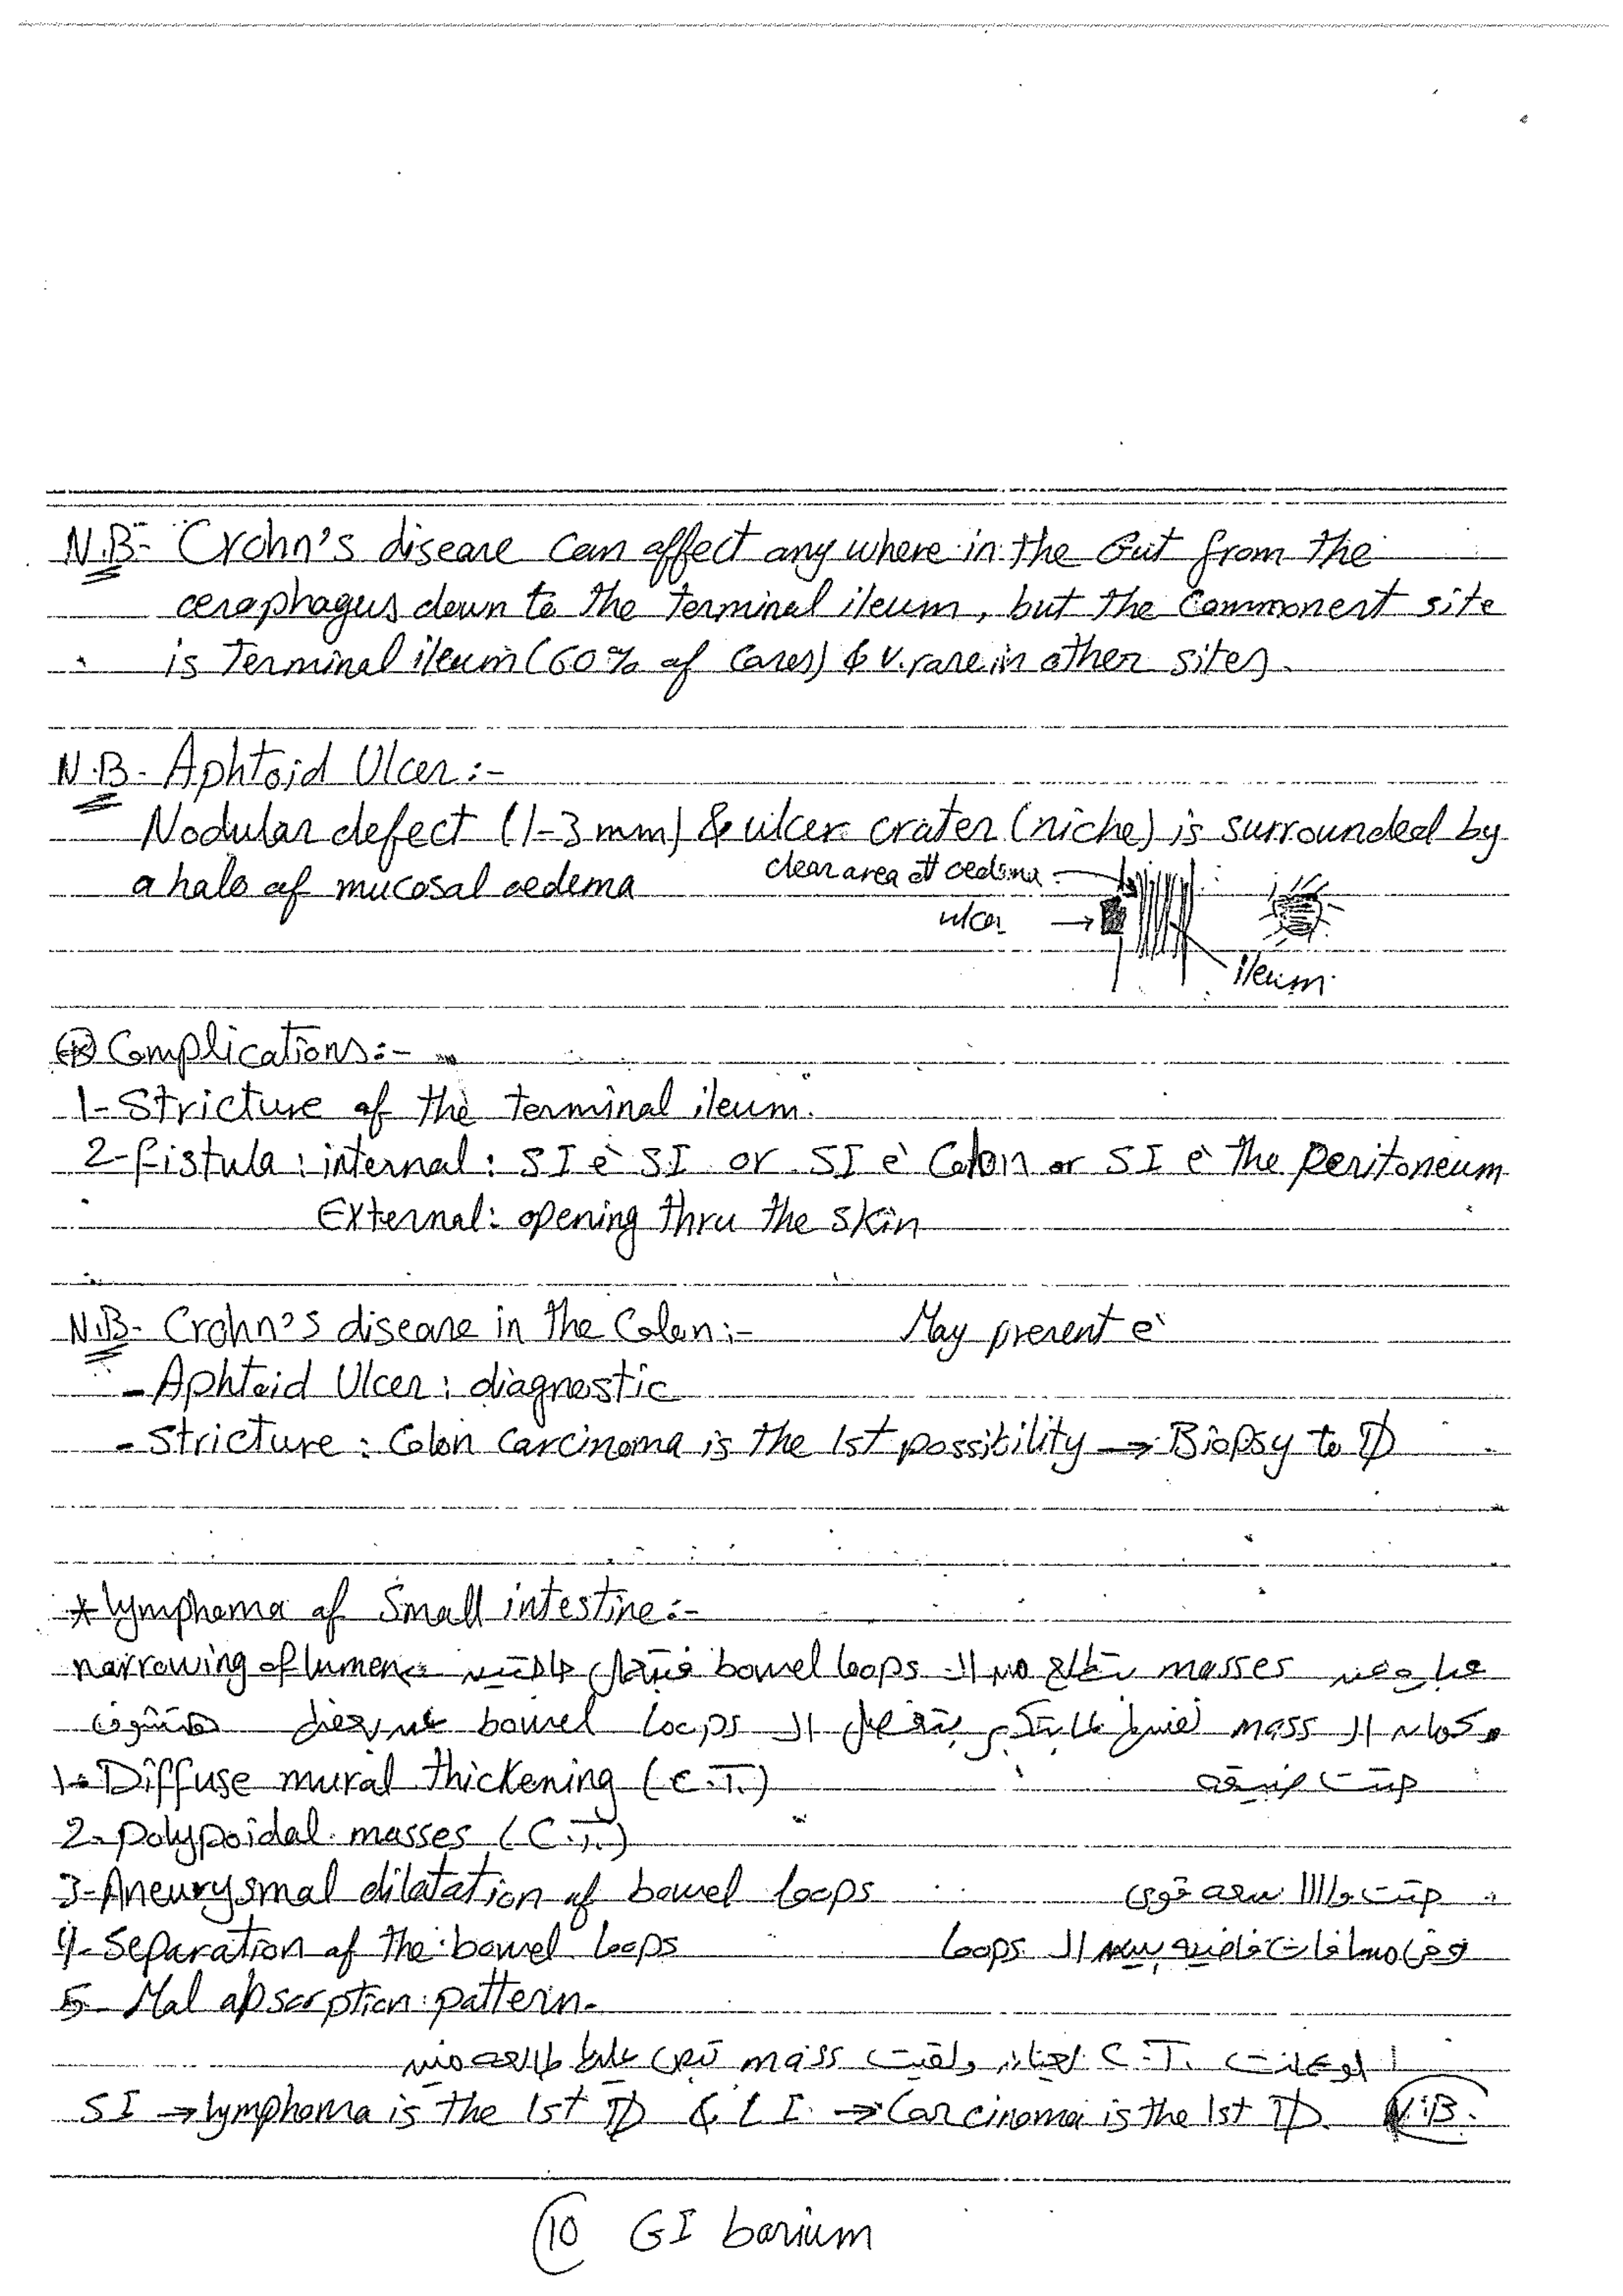 N.B- Crohn's disease can affect any where in the Gut from the
oesophagus down to the terminal ileum, but the Commonest site
is Terminal ileum (60% of Cases) & v. rare in other sites.
N.B- Aphtoid Ulcer:-
Nodular defect (1-3 mm) & ulcer crater (niche) is surrounded by
a halo of mucosal oedema
clear area oedema
ulcer →
ileum
⊛ Complications:-
1- Stricture of the terminal ileum.
2- fistula: internal: SI è SI or SI è Colon or SI è the peritoneum
External: opening thru the skin
N.B- Crohn's disease in the Colon:- May present è
- Aphtoid Ulcer: diagnostic
- Stricture: Colon carcinoma is the 1st possibility → Biopsy to D
* lymphoma of Small intestine:-
masses بتطلع من الـ bowel loops narrowing of lumen
وكمان الـ mass نفسها بتفصل الـ bowel loops عن بعض هتشوف
1- Diffuse mural thickening (C.T.) حتت ضيقة
2- polypoidal masses (C.T.)
3- Aneurysmal dilatation of bowel loops حتت واسعة قوى
4- Separation of the bowel loops وفى مسافات فاضيه بين الـ loops
5- Mal absorption pattern.
لو عملت C.T. لعيان ولقيت mass تبص على طالعة منين
N.B. SI → lymphoma is the 1st D & LI → Carcinoma is the 1st D.
10 GI barium